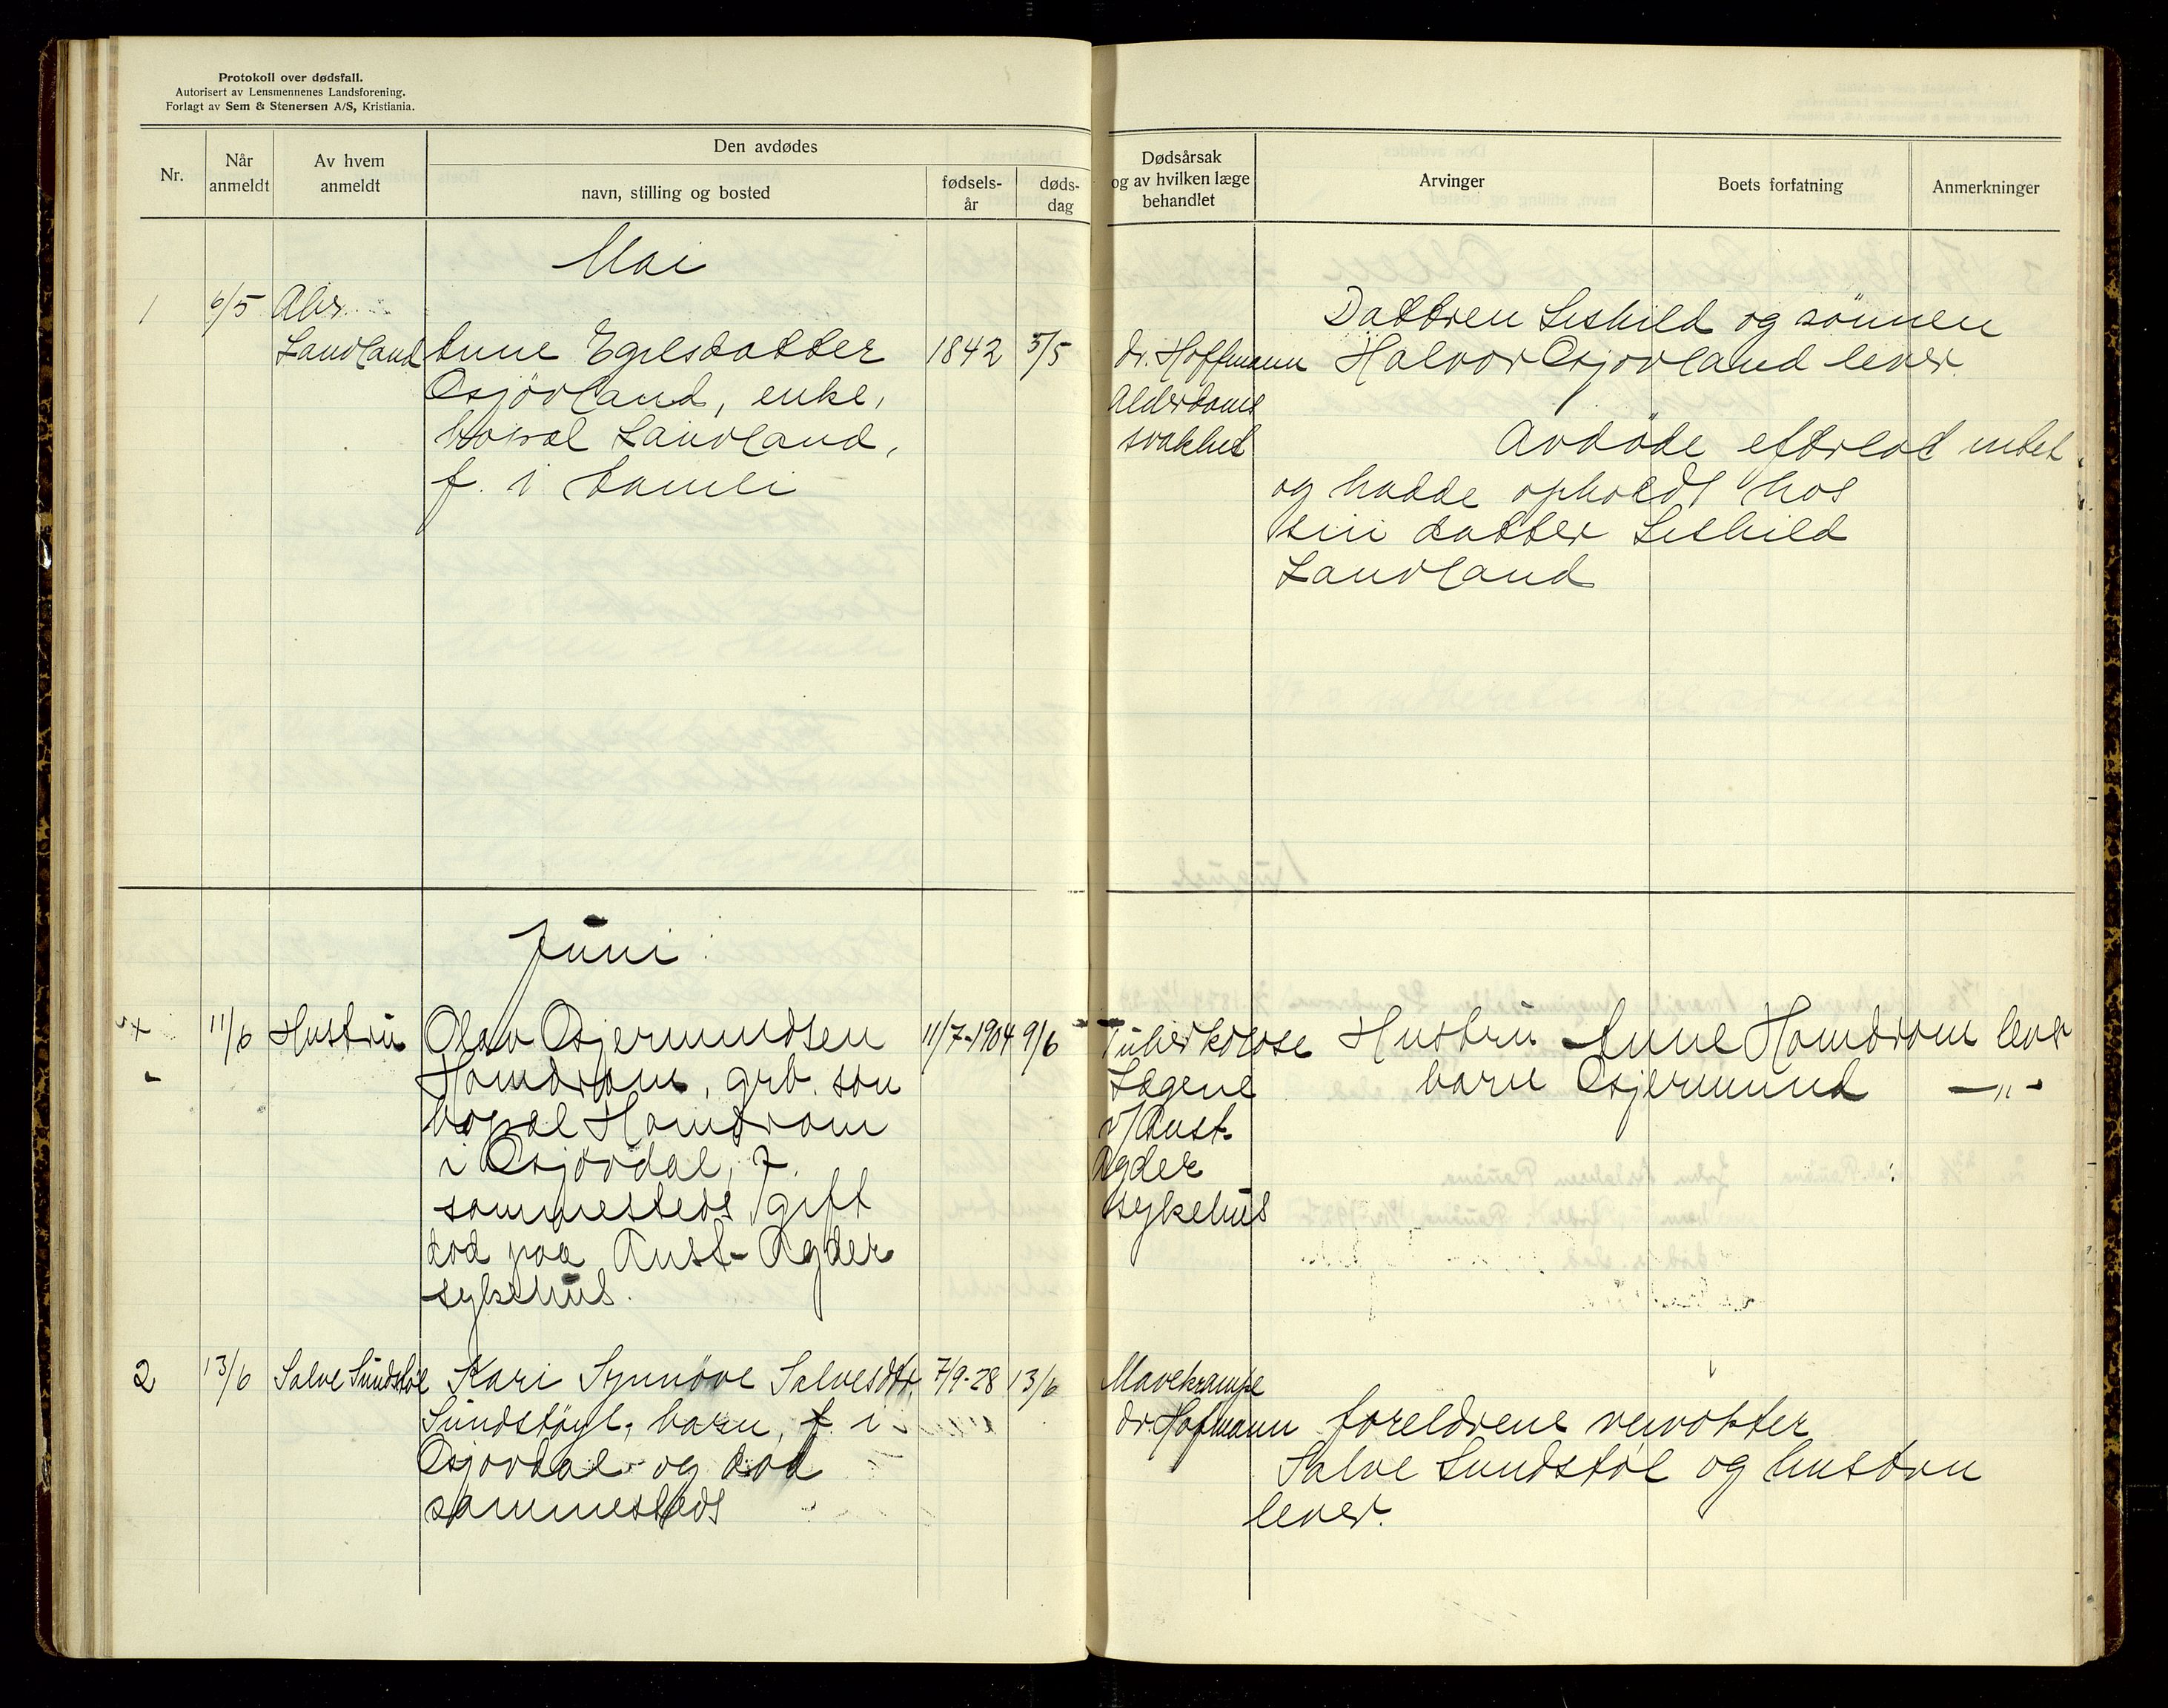 Protokoll over dødsfall.
Autorisert av Lensmennenes Landsforening.
Forlagt av Sem & Stenersen A/S, Kristiania.
Nr.
Når anmeldt
Av hvem anmeldt
Den avdødes
navn, stilling og bosted
fødsels-år
døds-dag
Dødsårsak og av hvilken læge behandlet
Arvinger
Boets forfatning
Anmerkninger
Mai
1 6/5
Landland Anne Egilsdatter 1842 5/5
Osjövland, enke,
bopæl Landland,
f. i Åmli
dr. Hoffmann
Alderdoms
svakhet
Dattren Liskild og sönnen
Halvor Osjovland lever.
Avdöde efterlot intet
og hadde ophold hos
sin datter Liskild
Landland
Juni:
11/6 Hustru Olav Osjermundsen 11/7-1904 9/6
Homdrom, grb. søn
bopæl Homdrom
i Osjövdal, f.
sammesteds, gift
död paa Aust-Agder
sykehus.
Tuberkolose
Lægene
v/ Aust-
Agder
sykehus
Hustru Anne Homdrom lever
barn Osjermund —"-
2 13/6 Salve Sundstøl Kari Synnöve Salvesdtr. 7/9-28 13/6
Sundstöyl, barn, f. i
Osjovdal og död
sammesteds
Mavekrampe
dr. Hofmann
foreldrene
Salve Sundstøl og hustru
lever.